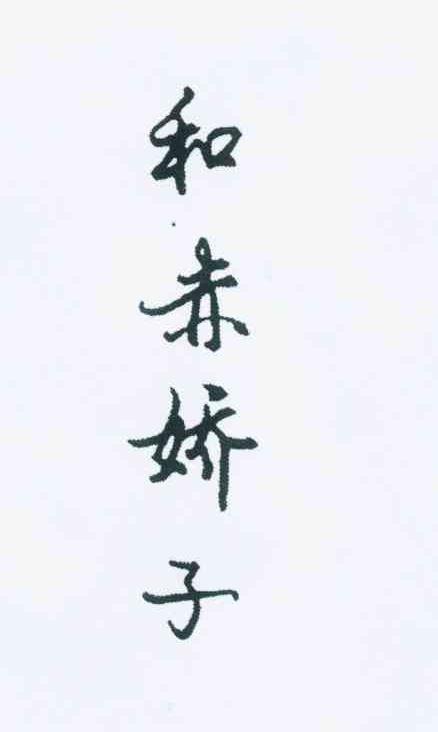 和赤娇子